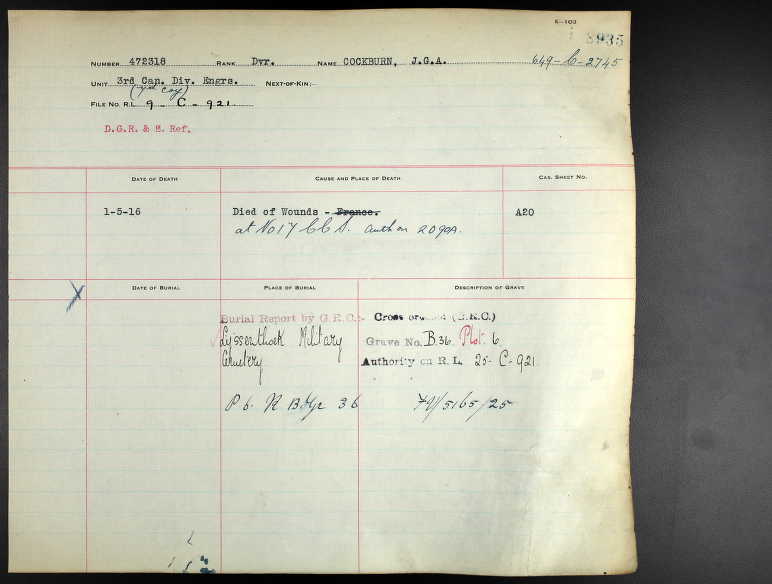 K-103
8935
NUMBER 472318 RANK Dvr. NAME COCKBURN, J.G.A. 649-C-2745
UNIT 3rd Can. Div. Engrs. NEXT-OF-KIN:-
FILE No. R.L. 9 - C - 921.
D.G.R. & E. Ref.
DATE OF DEATH CAUSE AND PLACE OF DEATH CAS. SHEET NO.
1-5-16 Died of Wounds - France. A20
at No 17 CCS. auth on 2090A.
DATE OF BURIAL PLACE OF BURIAL DESCRIPTION OF GRAVE
Burial Report by G.R.C:- Cross erected (G.R.C.)
Lijssenthoek Military Grave No. B.36. Plot. 6.
Cemetery Authority on R.L. 25- C-921.
P 6. R B 36